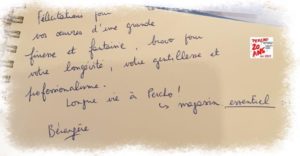 Félicitations pour
vos œuvres d'une grande
finesse et fantaisie, bravo pour
votre longévité, votre gentillesse et
professionnalisme.
Longue vie à Percho!
magasin essentiel
Bérangère
PERCHO
20
ANS